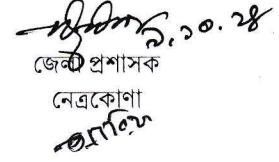 ৯.১০.২৪
জেলা প্রশাসক
নেত্রকোণা